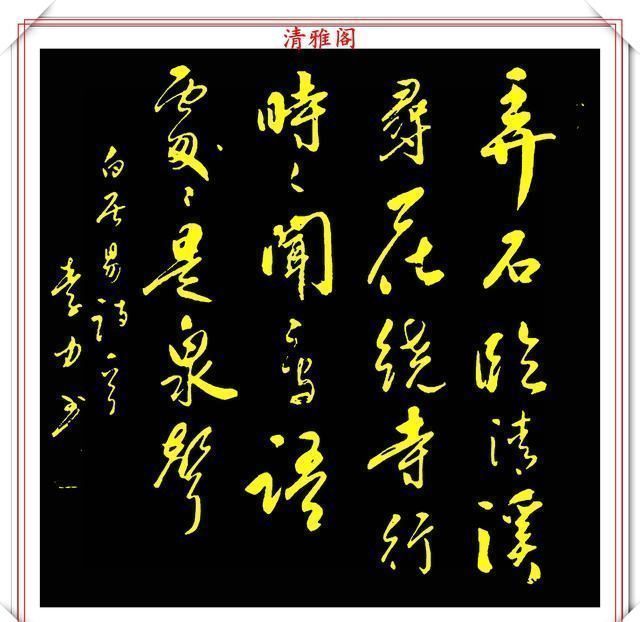 清雅阁
弄石臨清溪
尋花繞寺行
時々聞鳥語
處々是泉聲
白居易詩一首
李力书